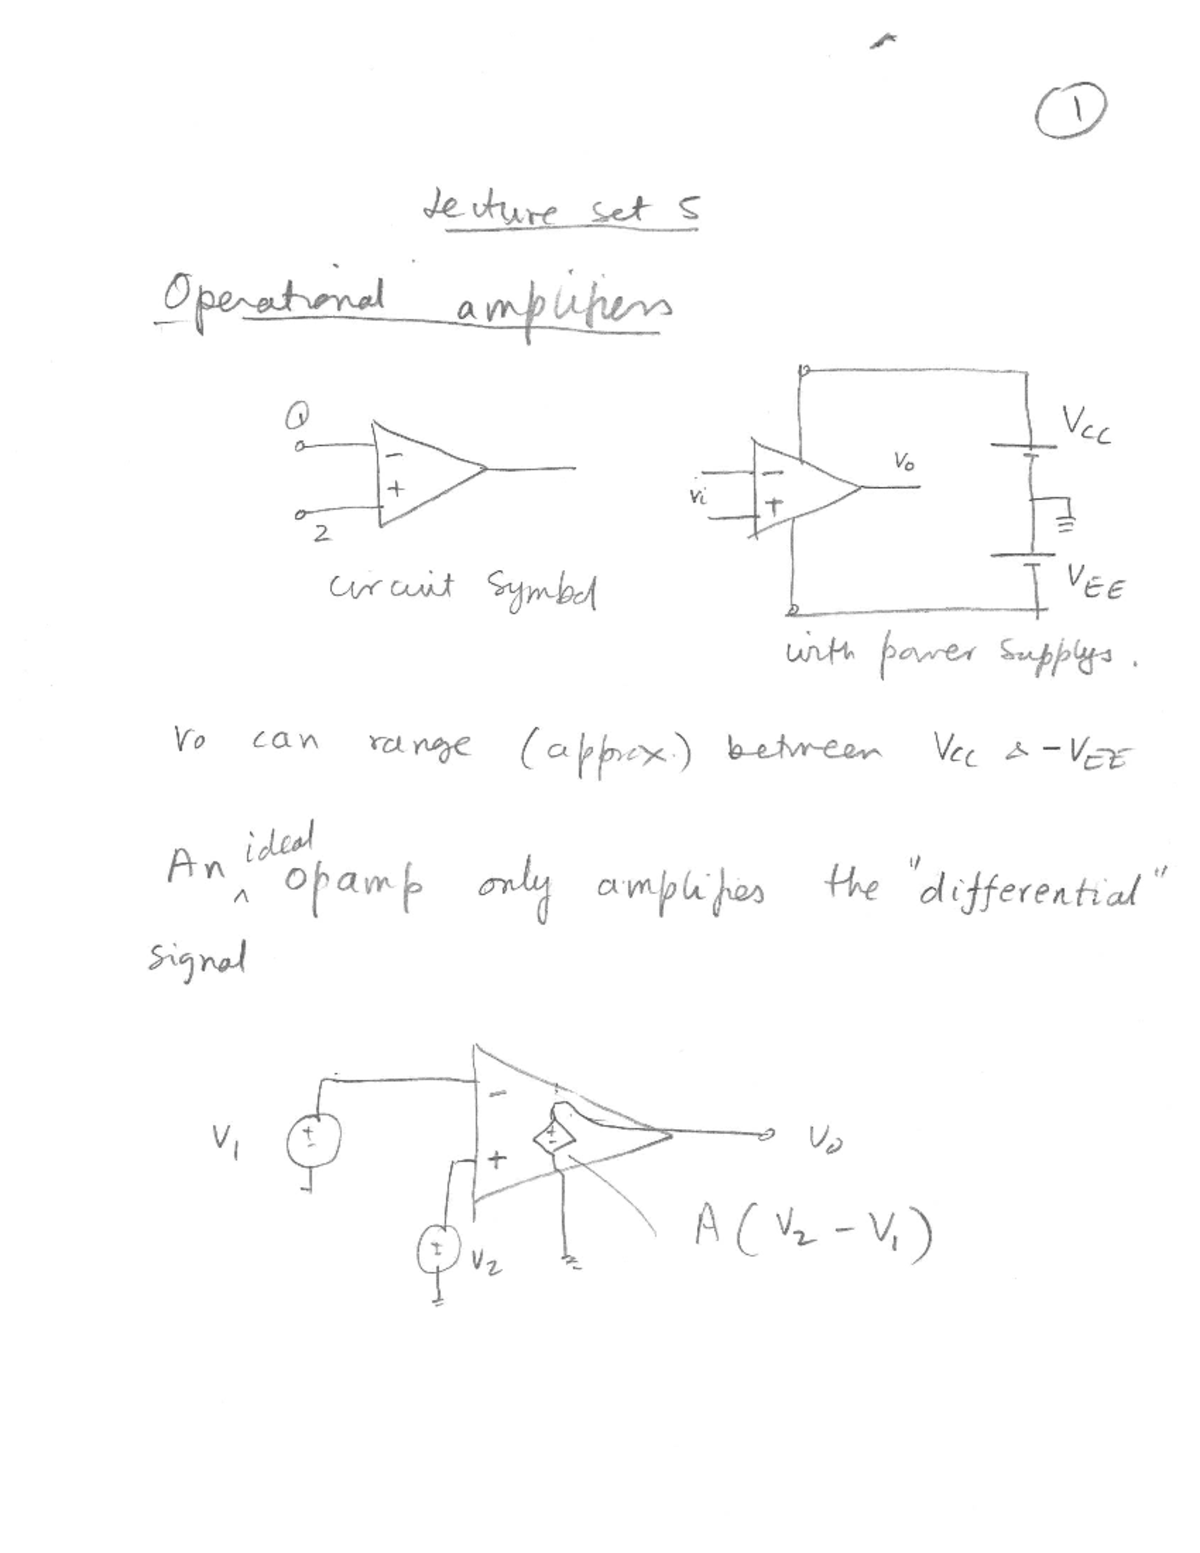 1
Lecture set 5
Operational amplifiers
1
-
+
2
circuit symbol
Vcc
Vo
Vi
-
+
VEE
with power supplys.
Vo can range (approx.) between Vcc & -VEE
An ^ ideal opamp only amplifies the "differential"
signal
V1
±
-
+
±
Vo
±
V2
A(V2 - V1)